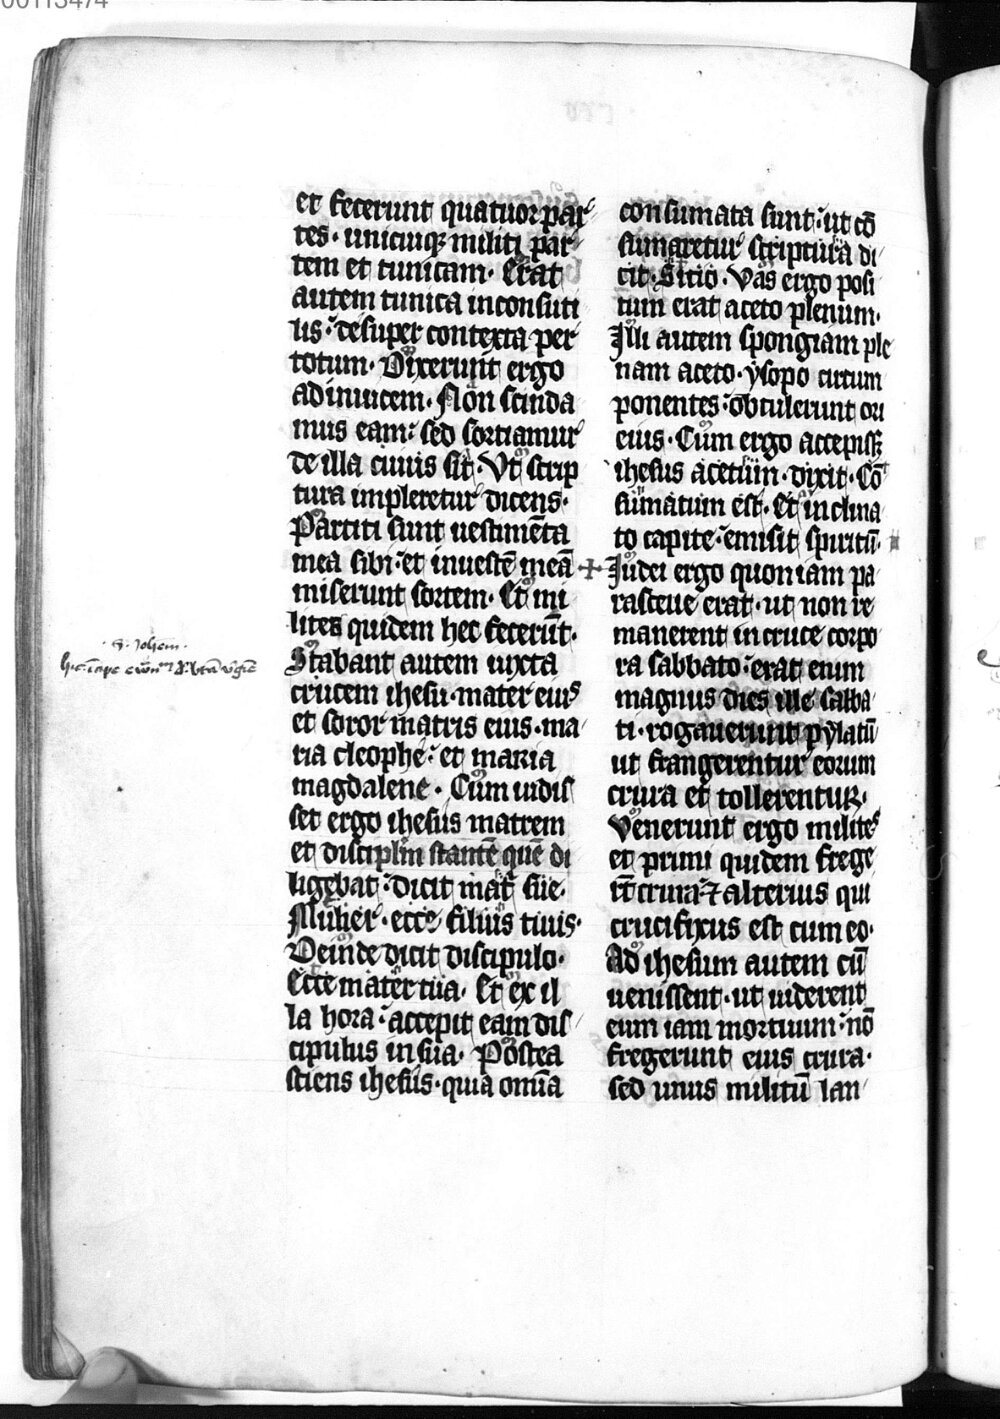 00113474
et fecerunt quatuor par
tes · unicuiq; militi par
tem et tunicam · Erat
autem tunica inconsuti
lis · desuper contexta per
totum · Dixerunt ergo
ad inuicem · Non scinda
mus eam · sed sortiamur
de illa cuius sit · Ut scrip
tura impleretur dicens ·
Partiti sunt uestimēta
mea sibi · et in uestē meā
miserunt sortem · Et mi
lites quidem hec fecerūt ·
Stabant autem iuxta
crucem ihesu · mater eius
et soror matris eius · ma
ria cleophe · et maria
magdalene · Cum uidis
set ergo ihesus matrem
et discipłm stantē quē di
ligebat · dicit mat̄ sue ·
Mulier · ecce filius tuus ·
Deinde dicit discipulo ·
Ecce mater tua · Et ex il
la hora · accepit eam dis
cipulus in sua · Postea
sciens ihesus · quia omīa
consumata sunt · ut cō
sumaretur scriptura di
cit · Sitio · Vas ergo posi
tum erat aceto plenum ·
Illi autem spongiam ple
nam aceto · ysopo circum
ponentes · obtulerunt ori
eius · Cum ergo accepiss;
ihesus acetum · dixit · Cō
sumatum est · Et inclina
to capite · emisit spiritū ·
Iudei ergo quoniam pa
rasceue erat · ut non re
manerent in cruce corpo
ra sabbato · erat enim
magnus dies ille sabba
ti · rogauerunt pylatū
ut frangerentur eorum
crura et tollerentur ·
Venerunt ergo milites
et primi quidem frege
rūt crura · ⁊ alterius qui
crucifixus est cum eo ·
Ad ihesum autem cū
uenissent · ut uiderent
eum iam mortuum · nō
fregerunt eius crura ·
sed unus militū lan